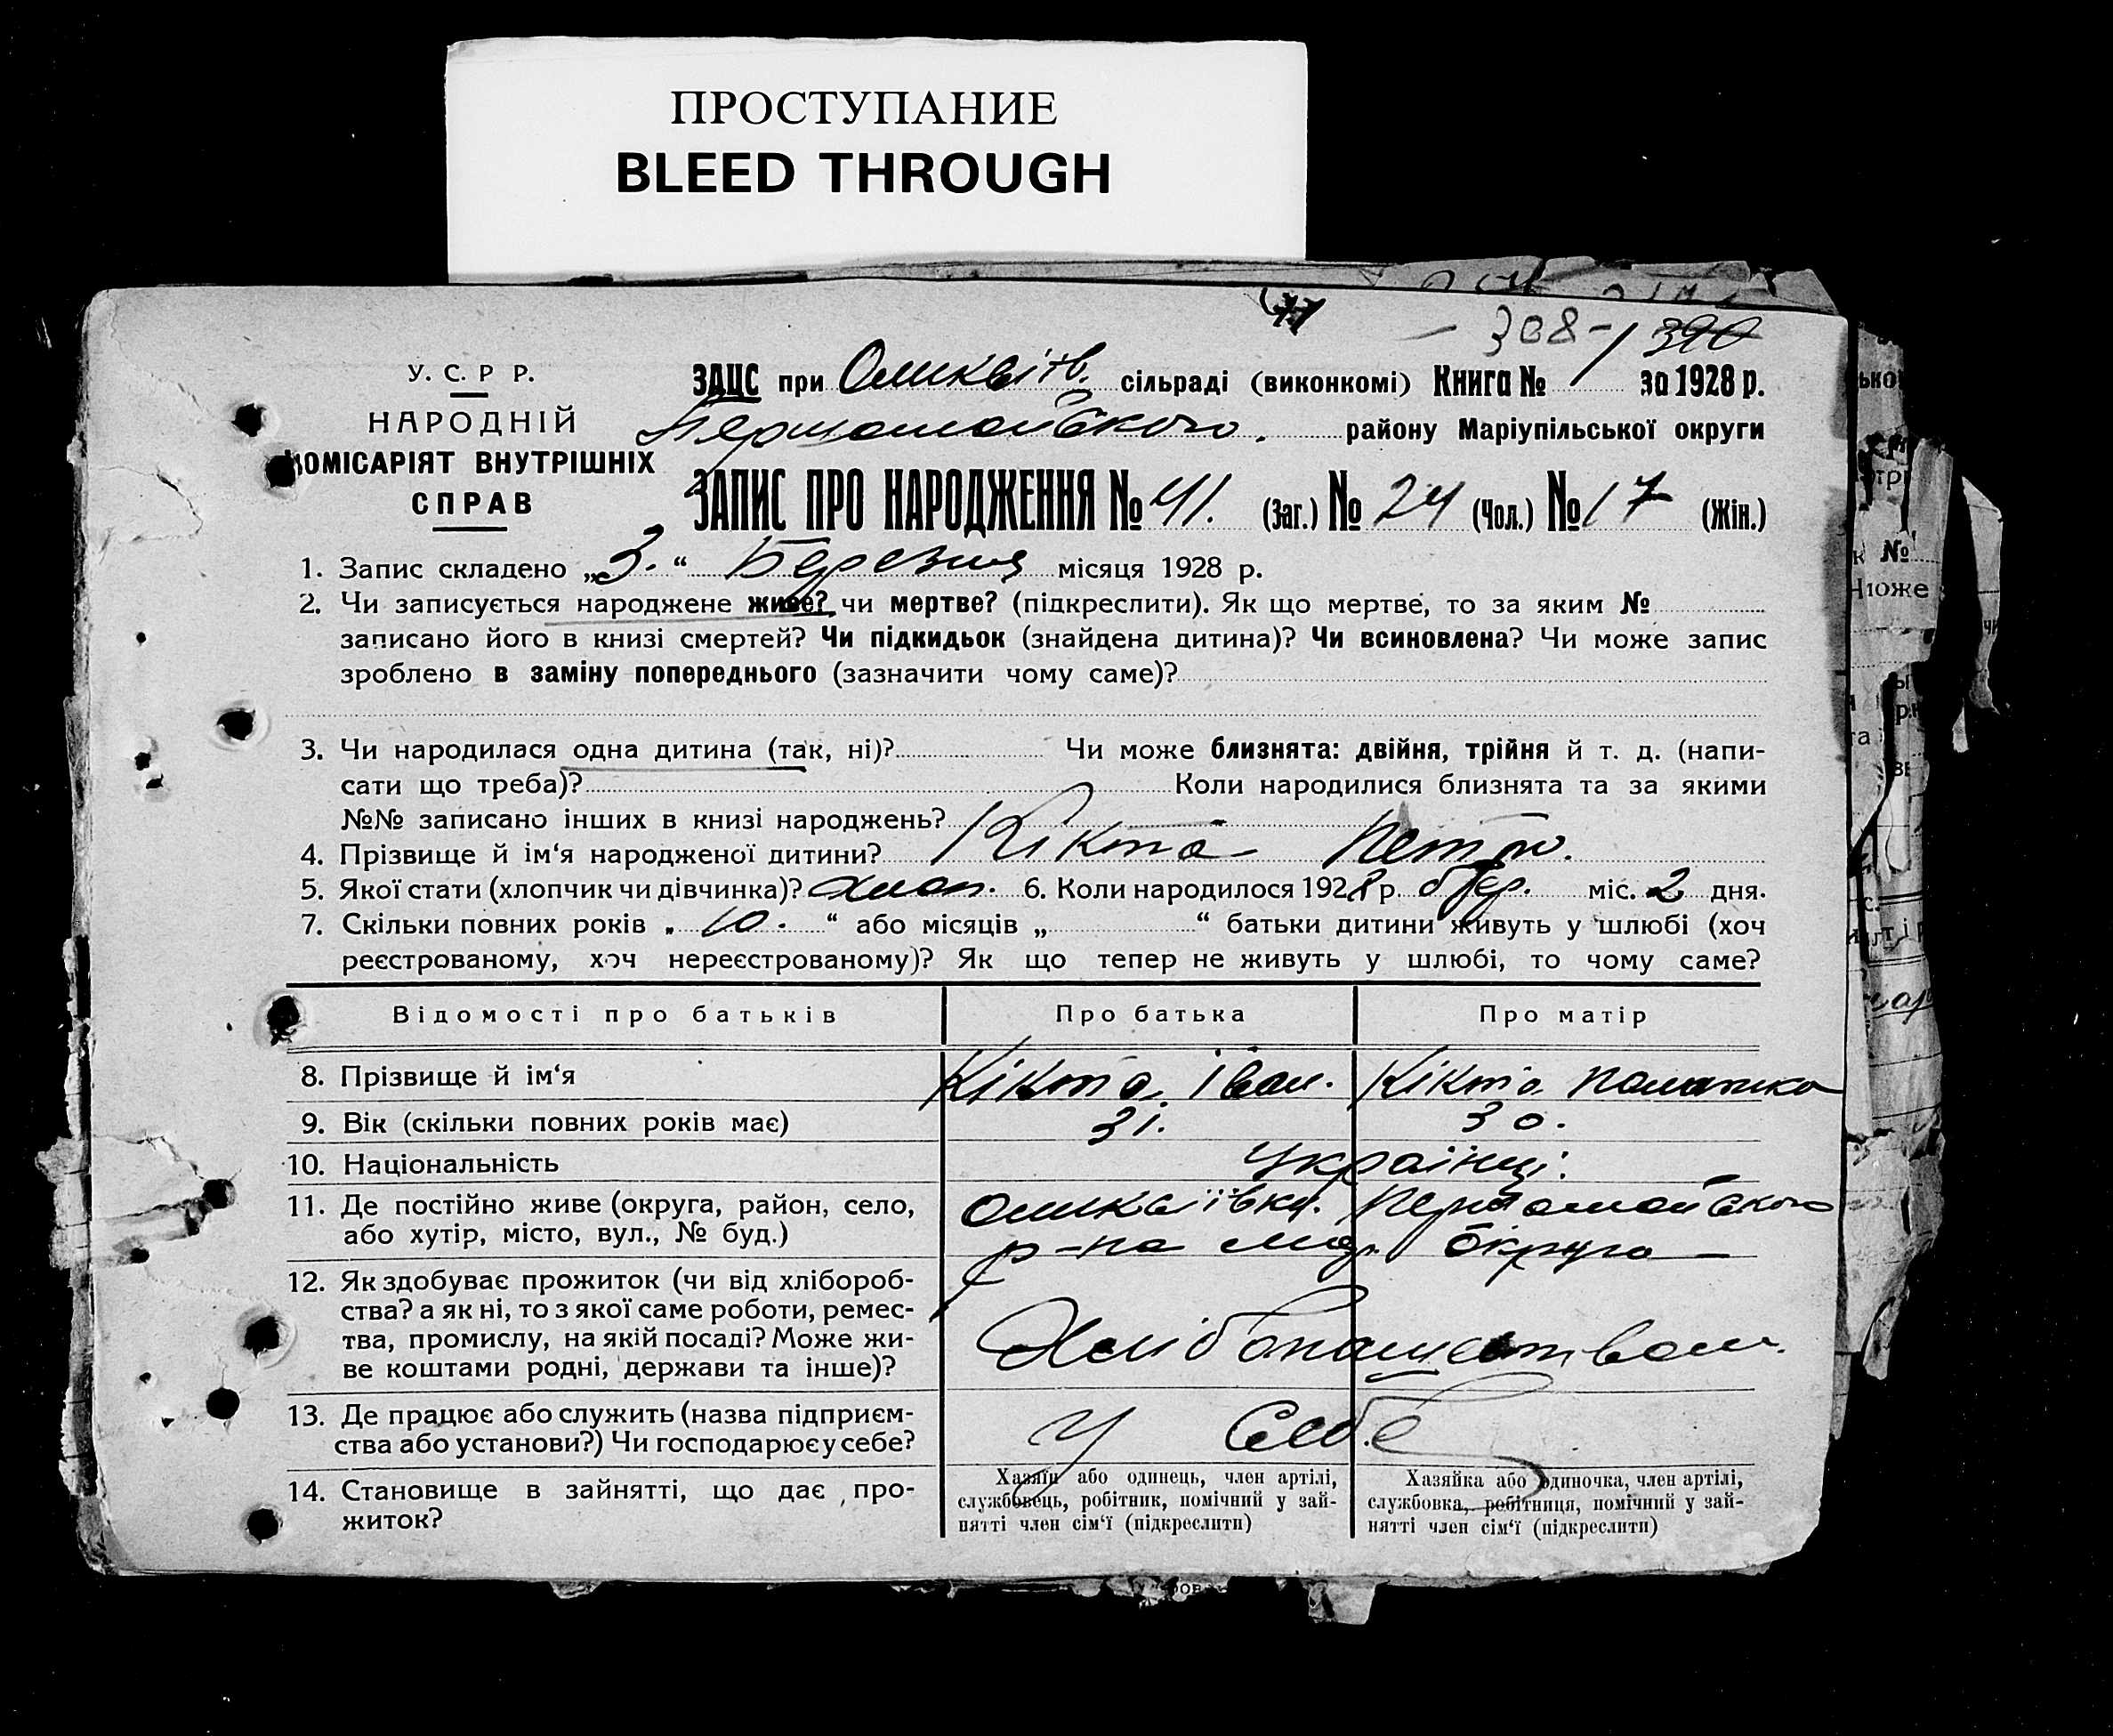 ПРОСТУПАНИЕ
BLEED THROUGH
308 - 390
У. С. Р Р.
НАРОДНІЙ
КОМІСАРІЯТ ВНУТРІШНІХ
СПРАВ
ЗАЦС при сільраді (виконкомі) Книга № 1 за 1928 р.
Першомайського. району Маріупільської округи
ЗАПИС ПРО НАРОДЖЕННЯ № 41. (Заг.) № 24 (Чол.) № 17 (Жін.)
1. Запис складено „3.“ Березня місяця 1928 р.
2. Чи записується народжене живе? чи мертве? (підкреслити). Як що мертве, то за яким №
записано його в книзі смертей? Чи підкидьок (знайдена дитина)? Чи всиновлена? Чи може запис
зроблено в заміну попереднього (зазначити чому саме)?
3. Чи народилася одна дитина (так, ні)? Чи може близнята: двійня, трійня й т. д. (напи-
сати що треба)? Коли народилися близнята та за якими
№№ записано інших в книзі народжень?
4. Прізвище й ім‘я народженої дитини? Кікта Петро.
5. Якої стати (хлопчик чи дівчинка)? хлоп. 6. Коли народилося 1928 р. бер. міс. 2 дня.
7. Скільки повних років „ 10. “ або місяців „ “ батьки дитини живуть у шлюбі (хоч
реєстрованому, хоч нереєстрованому)? Як що тепер не живуть у шлюбі, то чому саме?
Відомості про батьків Про батька Про матір
8. Прізвище й ім‘я Кікта Іван. Кікта
9. Вік (скільки повних років має) 31. 30.
10. Національність Українці.
11. Де постійно живе (округа, район, село, Першомайського
або хутір, місто, вул., № буд.) р-на Мар. округа
12. Як здобуває прожиток (чи від хлібороб-
ства? а як ні, то з якої саме роботи, ремес-
тва, промислу, на якій посаді? Може жи-
ве коштами родні, держави та інше)?
Хлібопашеством.
13. Де працює або служить (назва підприєм-
ства або установи?) Чи господарює у себе?
У себе
14. Становище в зайнятті, що дає про-
житок?
Хазяїн або одинець, член артілі,
службовець, робітник, помічний у зай-
нятті член сім‘ї (підкреслити)
Хазяйка або одиночка, член артілі,
службовка, робітниця, помічний у зай-
нятті член сім‘ї (підкреслити)